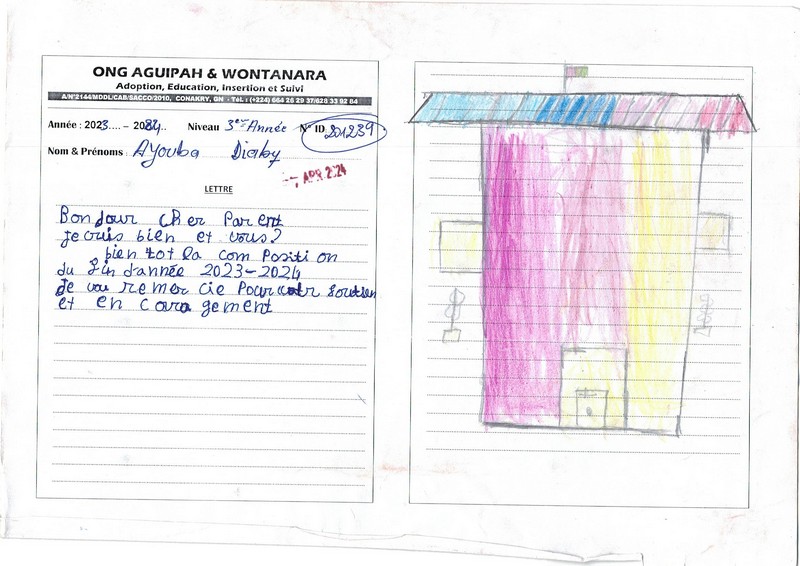 ONG AGUIPAH & WONTANARA
Adoption, Education, Insertion et Suivi
A/N°2144/MDDL/CAB/SACCO/2010, CONAKRY, GN - Tél : (+224) 664 28 29 37/628 33 92 84
Année : 2023.... - 2024.. Niveau 3ème Année N° ID 201239
Nom & Prénoms : Ayouba Diaby
APR. 2024
LETTRE
Bonjour cher Parent
je cuis bien et vous?
bien tot la com Positi on
du fin d'année 2023-2024
Je vou remer cie Pour soutien
et en coura gement